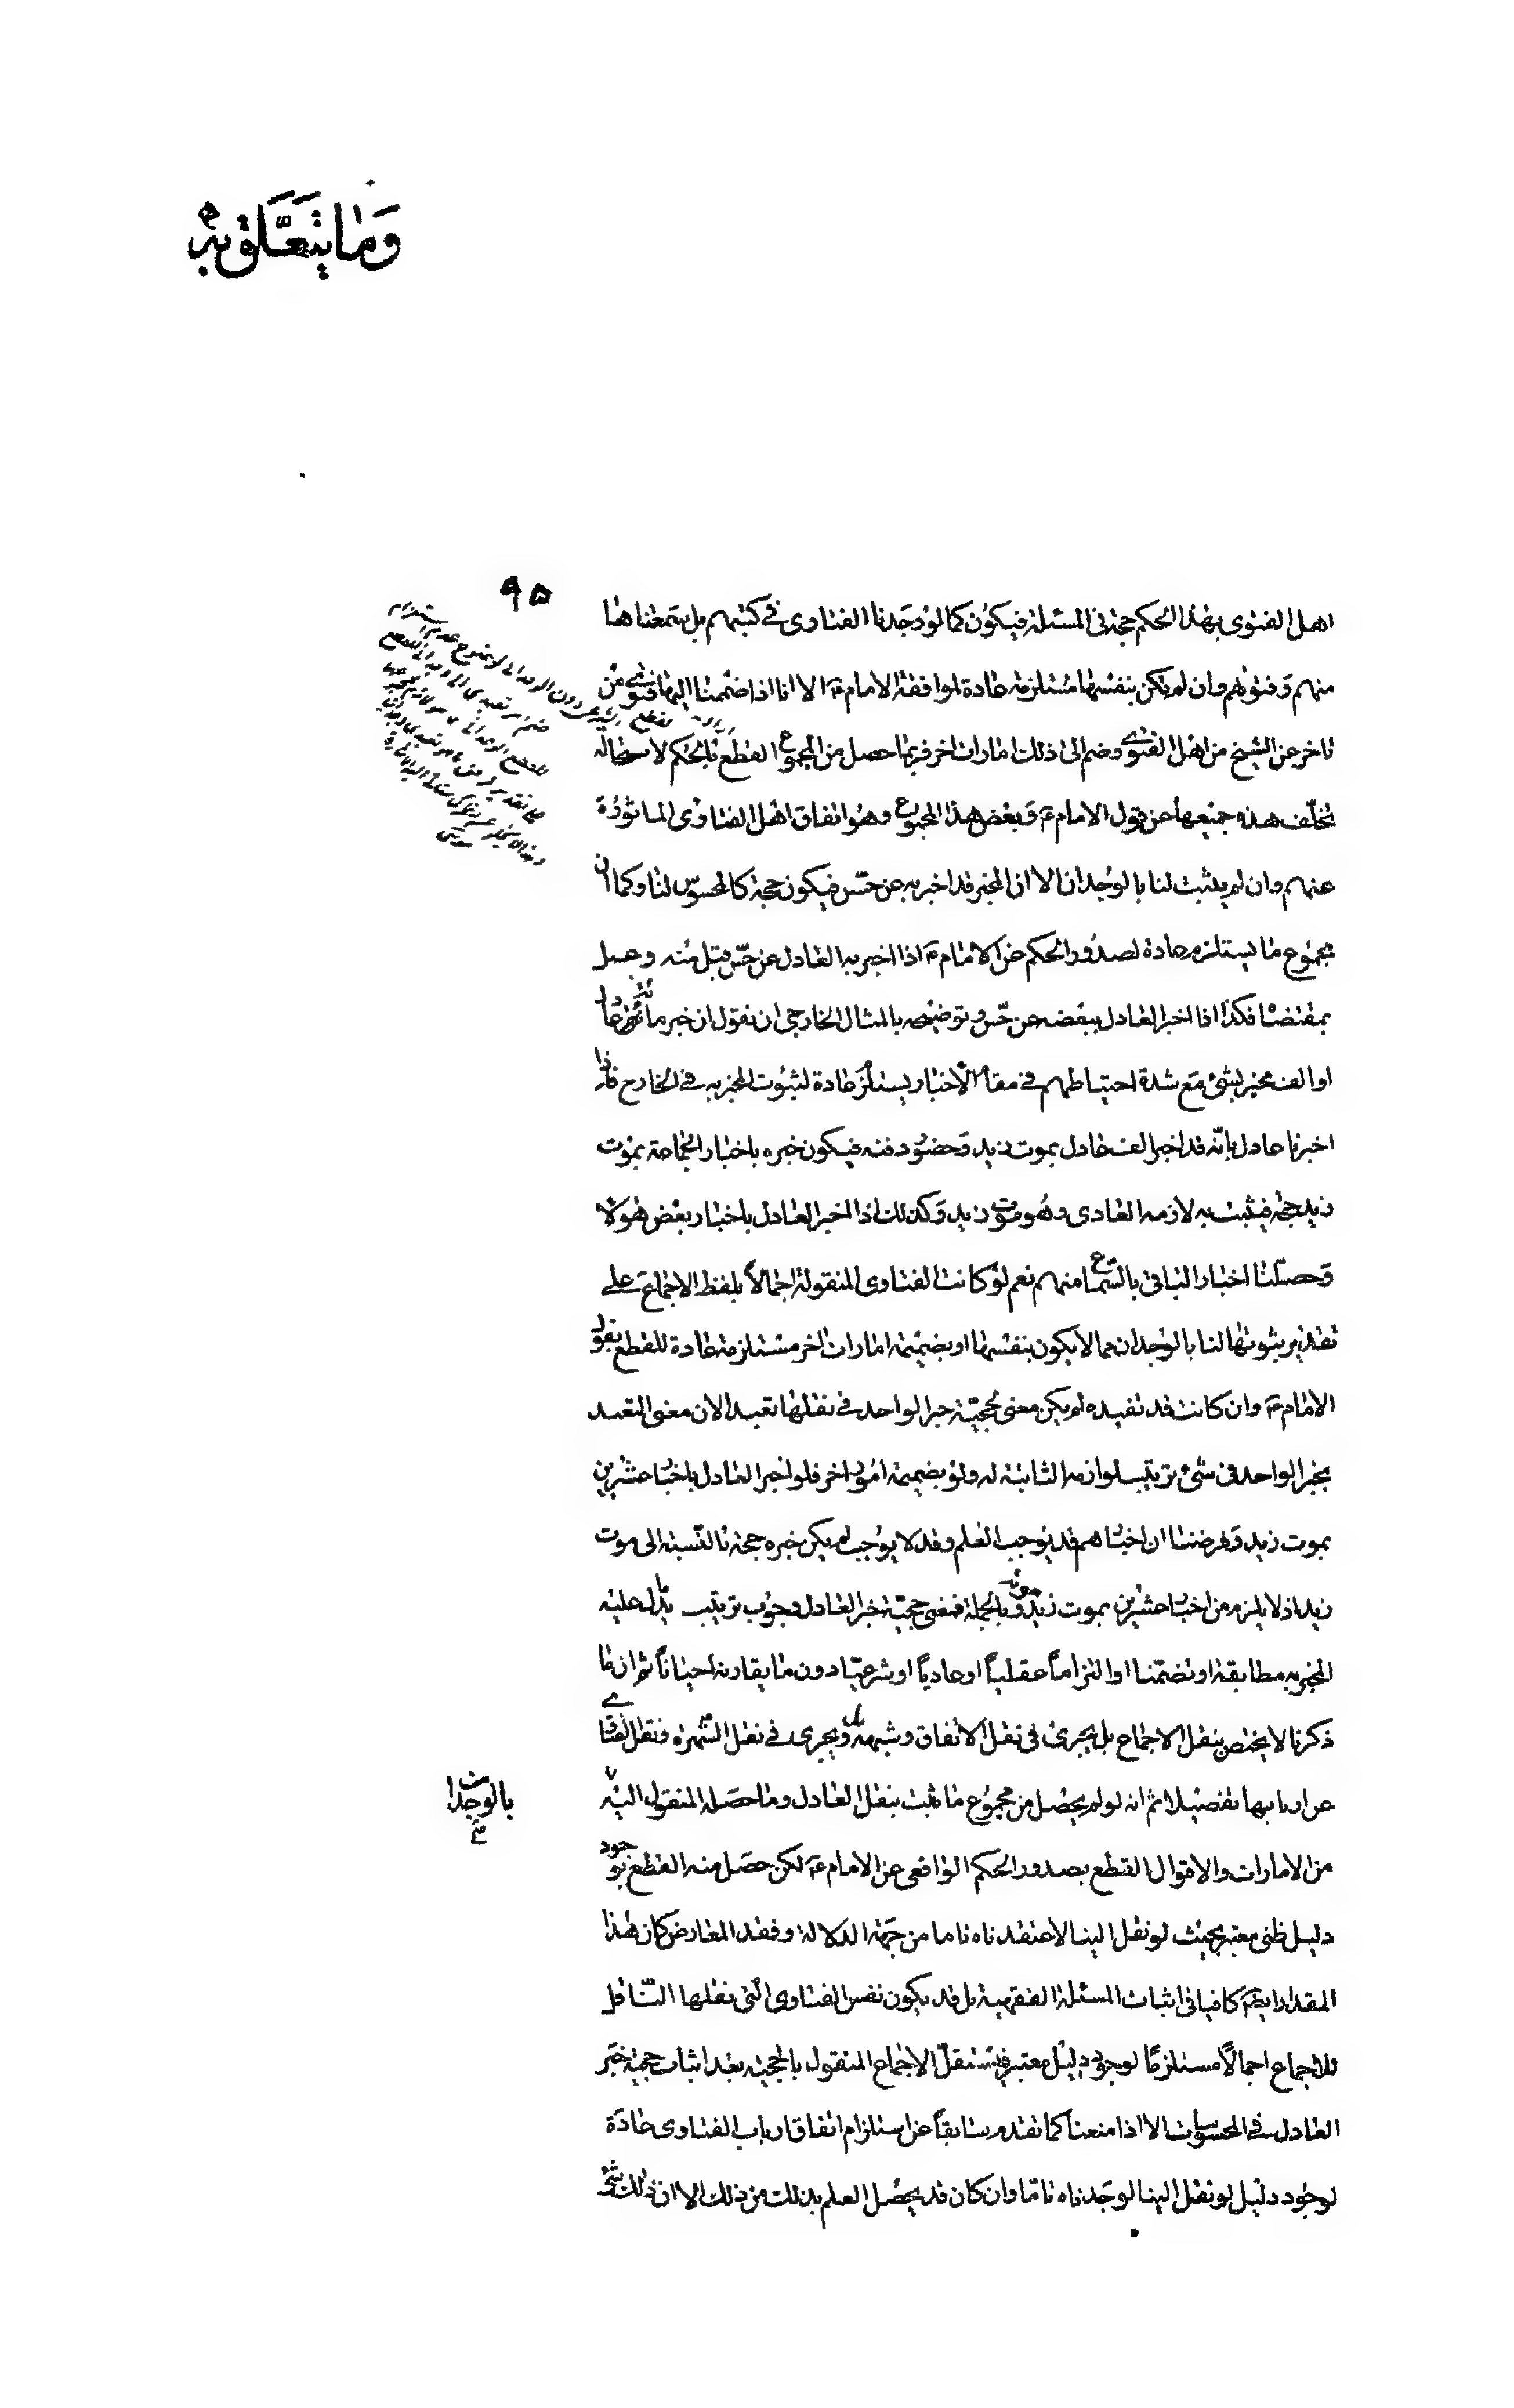 وَمٰا يَتَعَلَّقُ بِهِ
٩٥
اهل الفتوى بهذا الحكم حجة فى المسئلة فيكون كما لو وجدنا الفتاوى فى كتبهم بل سمعناها
منهم وفتويهم وان لم تكن بنفسها مستلزمة عادة لموافقة الامام ع الا انا اذا ضممنا اليها فتوى من
تاخر عن الشيخ من اهل الفتوى وضم الى ذلك امارات اخر فربما حصل من المجموع القطع بالحكم لاستحالة
تخلّف هذه جميعها عن قول الامام ع وبعض هذا المجموع وهو اتفاق اهل الفتاوى الماثورة
عنهم وان لم يثبت لنا بالوجدان الا ان المخبر قد اخبر به عن حسّ فيكون حجة كالمحسوس لنا وكما ان
مجموع ما يستلزم عادة لصدور الحكم عن الامام ع اذا اخبر به العادل عن حسّ قبل منه وعمل
بمقتضاه فكذا اذا اخبر العادل ببعضه عن حسّ وتوضيحه بالمثال الخارجى ان نقول ان خبر مائة عادل
او الف مخبر بشئ مع شدة احتياطهم فى مقام الاخبار يستلزم عادة لثبوت المخبر به فى الخارج فاذا
اخبرنا عادل بانّه قد اخبر الف عادل بموت زيد وحضور دفنه فيكون خبره باخبار الجماعة بموت
زيد حجة فيثبت به لازمه العادى وهو موت زيد وكذلك اذا اخبر العادل باخبار بعض هولاء
وحصّلنا اخبار الباقى بالسّماع منهم نعم لو كانت الفتاوى المنقولة اجمالاً بلفظ الاجماع على
تقدير ثبوتها لنا بالوجدان مما لا يكون بنفسها او بضميمة امارات اخر مستلزمة عادة للقطع بقول
الامام ع وان كانت قد تفيده لم يكن معنى لحجيّة خبر الواحد فى نقلها تعبدا لان معنى التعبد
بخبر الواحد فى شئ ترتيب لوازمه الثابتة له ولو بضميمة امور اخر فلو اخبر العادل باخبار عشرين
بموت زيد وفرضنا ان اخبارهم قد يوجب العلم وقد لا يوجب لم يكن خبره حجة بالنّسبة الى موت
زيد اذ لا يلزم من اخبار عشرين بموت زيد موته وبالجملة فمعنى حجيّة خبر العادل وجوب ترتيب ما يدل عليه
المخبر به مطابقة او تضمّنا او التزاماً عقلياً او عادياً او شرعيّا دون ما يقارنه احيانا ثم ان ما
ذكرنا لا يختص بنقل الاجماع بل يجرى فى نقل الاتفاق وشبهه ويجرى فى نقل الشهرة ونقل الفتاوى
عن اربابها تفصيلا ثم انه لو لم يحصل من مجموع ما ثبت بنقل العادل وما حصله المنقول اليه
بالوجدان
من الامارات والاقوال القطع بصدور الحكم الواقعى عن الامام ع لكن حصل منه القطع بوجود
دليل ظنى معتبر بحيث لو نقل الينا لاعتقدناه تاما من جهة الدلالة وفقد المعارض كان هذا
المقدار ايضا كافيا فى اثبات المسئلة الفقهية بل قد يكون نفس الفتاوى الّتى نقلها النّاقل
للاجماع اجمالاً مستلزما لوجود دليل معتبر فيستقلّ الاجماع المنقول بالحجية بعد اثبات حجية خبر
العادل فى المحسوسات الا اذا منعنا كما تقدم سابقاً عن استلزام اتفاق ارباب الفتاوى عادة
لوجود دليل لو نقل الينا لوجدناه تاما وان كان قد يحصل العلم بذلك من ذلك الا ان ذلك شئ